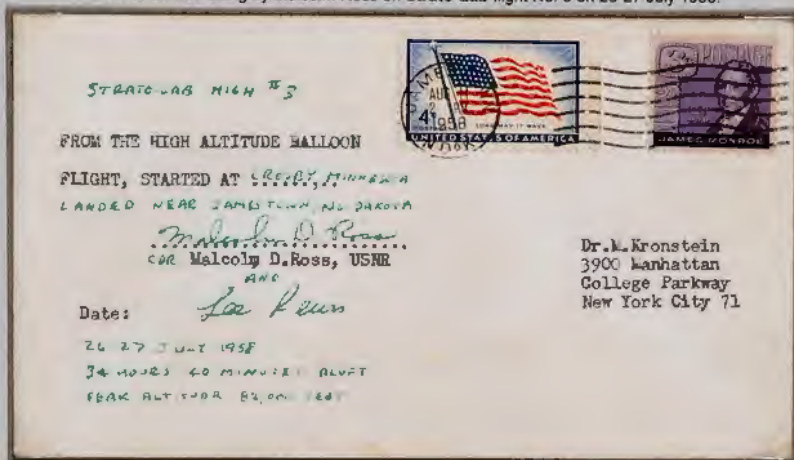 on 26-27 July 1958.
STRATO-LAB HIGH #3
FROM THE HIGH ALTITUDE BALLOON
FLIGHT, STARTED AT CROSBY, MINNESOTA
LANDED NEAR JAMESTOWN, NO. DAKOTA
Malcolm D. Ross
CDR Malcolm D.Ross, USNR
AND
Lee Lewis
Date:
26 27 JULY 1958
34 HOURS 40 MINUTES ALOFT
PEAK ALTITUDE 82,000 FEET
AUG
1958
4¢
LONG MAY IT WAVE
UNITED STATES OF AMERICA
POSTAGE
JAMES MONROE
Dr.M.Kronstein
3900 Manhattan
College Parkway
New York City 71